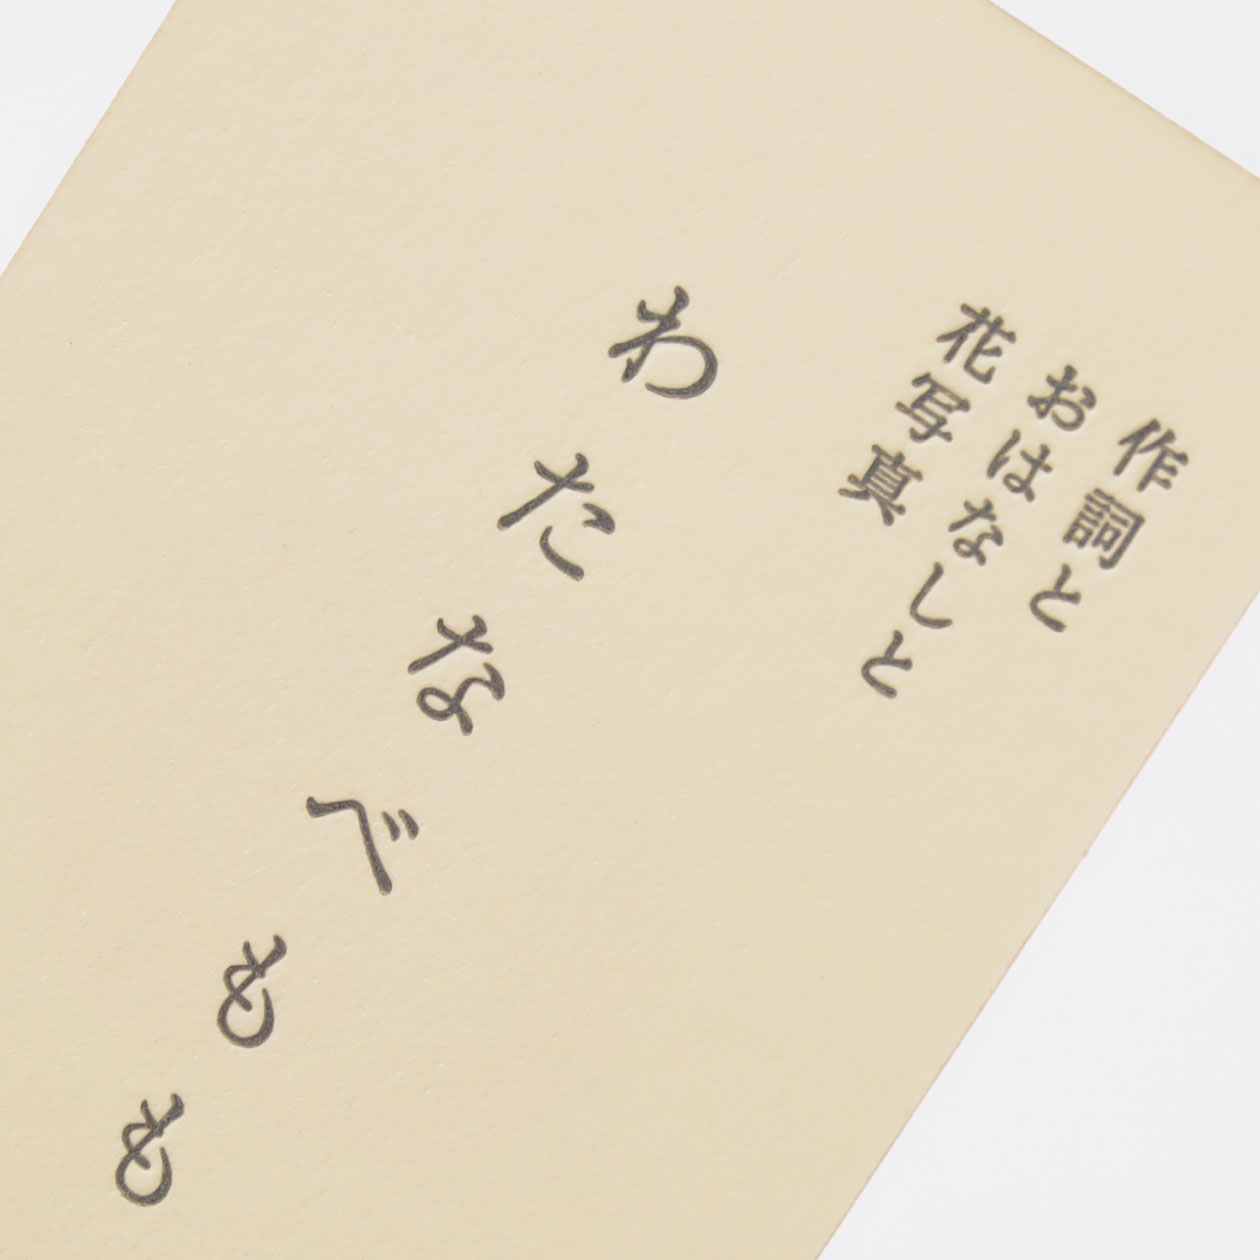 作詞と
おはなしと
花写真
わたなべもも